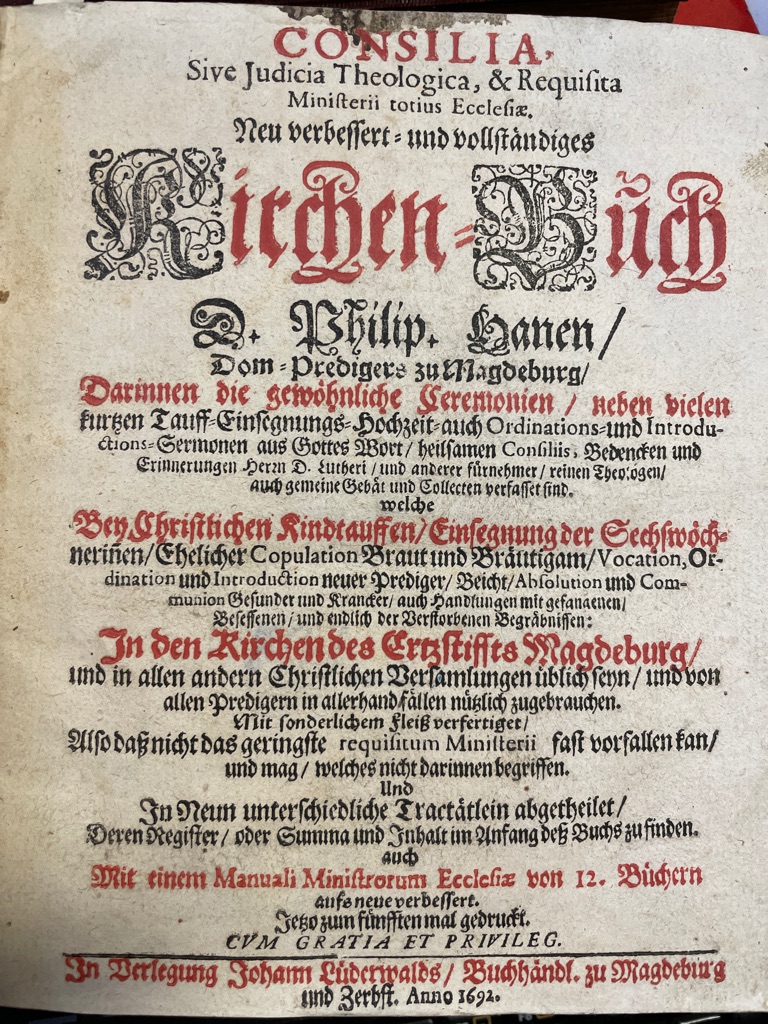 CONSILIA,
Sive Judicia Theologica, & Requisita
Ministerii totius Ecclesiæ.
Neu verbessert- und vollständiges
Kirchen-Bũch
D. Philip. Hanen/
Dom-Predigers zu Magdeburg/
Darinnen die gewöhnliche Ceremonien / neben vielen
kurtzen Tauff-Einsegnungs-Hochzeit-auch Ordinations-und Introdu-
ctions-Sermonen aus Gottes Wort/ heilsamen Consiliis, Bedencken und
Erinnerungen Herrn D. Lutheri/ und anderer fürnehmer/ reinen Theologen/
auch gemeine Gebät und Collecten verfasset sind.
welche
Bey Christlichen Kindtauffen/ Einsegnung der Sechswöch-
neriñen/ Ehelicher Copulation Braut und Bräutigam/ Vocation, Or-
dination und Introduction neuer Prediger/ Beicht/ Absolution und Com-
munion Gesunder und Krancker/ auch Handlungen mit gefangenen/
Besessenen/ und endlich der Verstorbenen Begräbnissen:
In den Kirchen des Ertzstiffts Magdeburg/
und in allen andern Christlichen Versamlungen üblich seyn/ und von
allen Predigern in allerhand fällen nützlich zugebrauchen.
Mit sonderlichem Fleiß verfertiget/
Also daß nicht das geringste requisitum Ministerii fast vorfallen kan/
und mag/ welches nicht darinnen begriffen.
Und
In Neun unterschiedliche Tractätlein abgetheilet/
Deren Register/ oder Summa und Inhalt im Anfang deß Buchs zu finden.
auch
Mit einem Manuali Ministrorum Ecclesiæ von 12. Büchern
aufs neue verbessert.
Jetzo zum fünfften mal gedruckt.
CVM GRATIA ET PRIVILEG.
In Verlegung Johann Lüderwalds/ Buchhändl. zu Magdeburg
und Zerbst. Anno 1692.